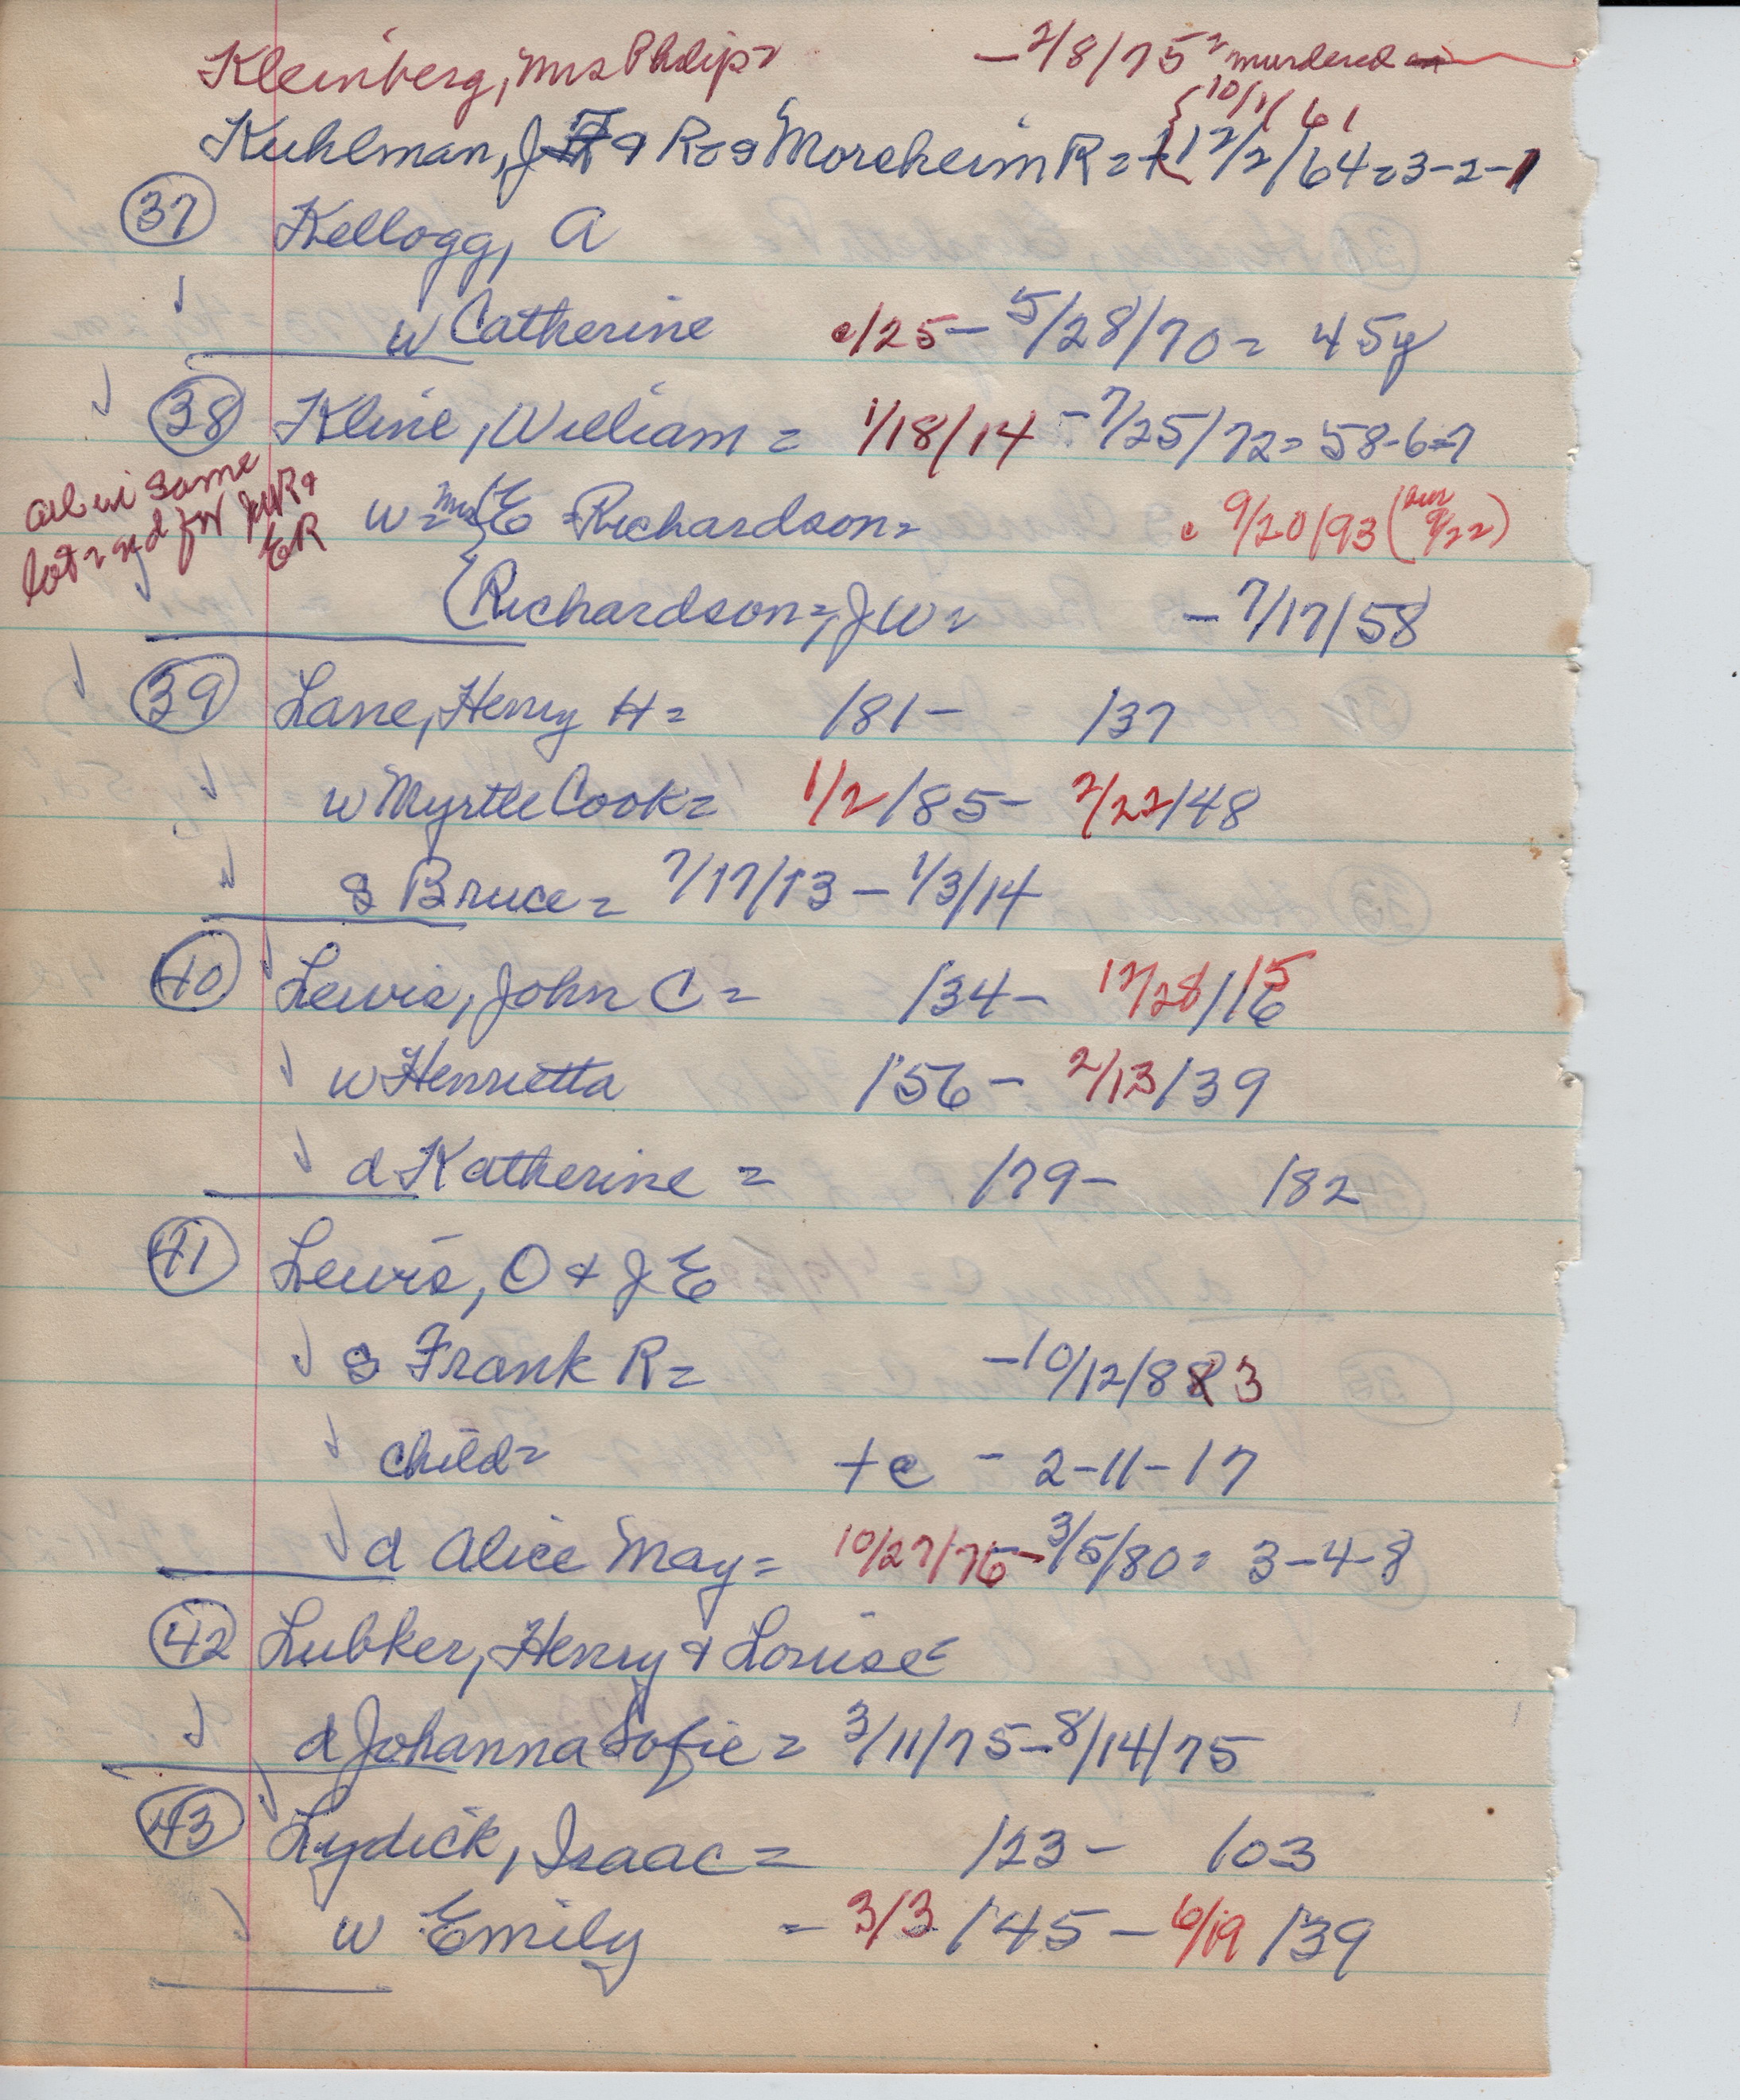 Kleinberg, Mrs Philip = - 2/8/75 = murdered
Kuhlman, J F & R = s Moreheim R = {10/1/61
12/2/64 = 3-2-1
(37) Kellogg, A
w Catherine c/25 - 5/28/70 = 45y
(38) Kline, William = 1/18/14 - 7/25/72 = 58-6-7
all in same
lot = gd for JWR &
ER
w = Mrs {E = Richardson = c 9/20/93 (bur 9/22)
{Richardson =, JW = - 7/17/58
(39) Lane, Henry H = /81 - /37
w Myrtle Cook = 1/2/85 - 2/22/48
s Bruce = 7/17/13 - 1/3/14
(40) Lewis, John C = /34 - 12/28/16 15
w Henrietta /56 - 2/13/39
d Katherine = /79 - /82
(41) Lewis, O & J E
s Frank R = - 10/12/88 3
child = + c - 2-11-17
d Alice May = 10/27/76 - 3/5/80 = 3-4-8
(42) Lubker, Henry & Louise
d Johanna Sofie = 3/11/75 - 8/14/75
(43) Lydick, Isaac = /23 - /03
w Emily = 3/3/45 - 6/19/39